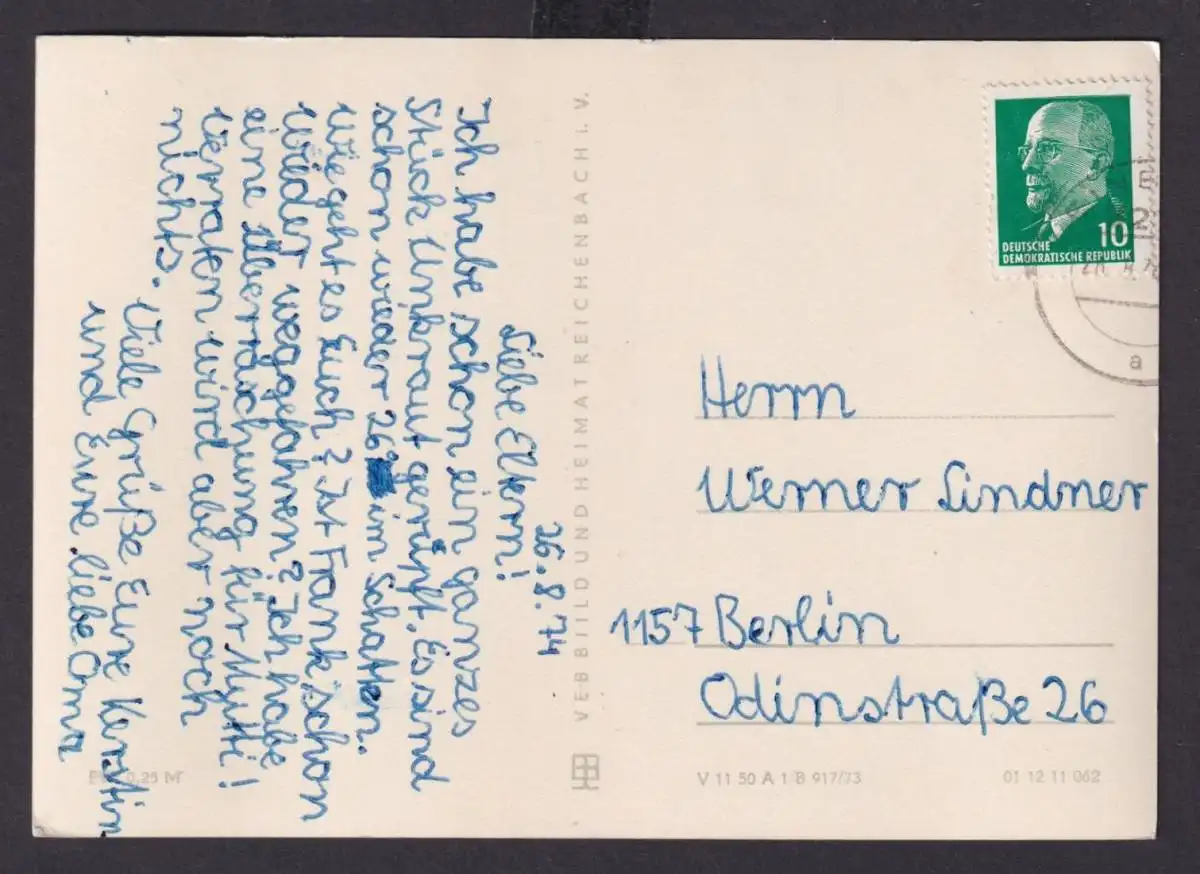 26.8.74
Liebe Eltern!
Ich habe schon ein ganzes
Stück Unkraut gerupft. Es sind
schon wieder 26° im Schatten.
Wie geht es Euch? Ist Frank schon
wieder weggefahren? Ich habe
eine Überraschung für Mutti!
Verraten wird aber noch
nichts.
Viele Grüße Eure Kerstin
und Eure liebe Oma
VEB BILD UND HEIMAT REICHENBACH I. V.
DEUTSCHE
DEMOKRATISCHE REPUBLIK
10
a
Herrn
Werner Lindner
1157 Berlin
Odinstraße 26
0,25 M
V 11 50 A 1 B 917/73
01 12 11 062